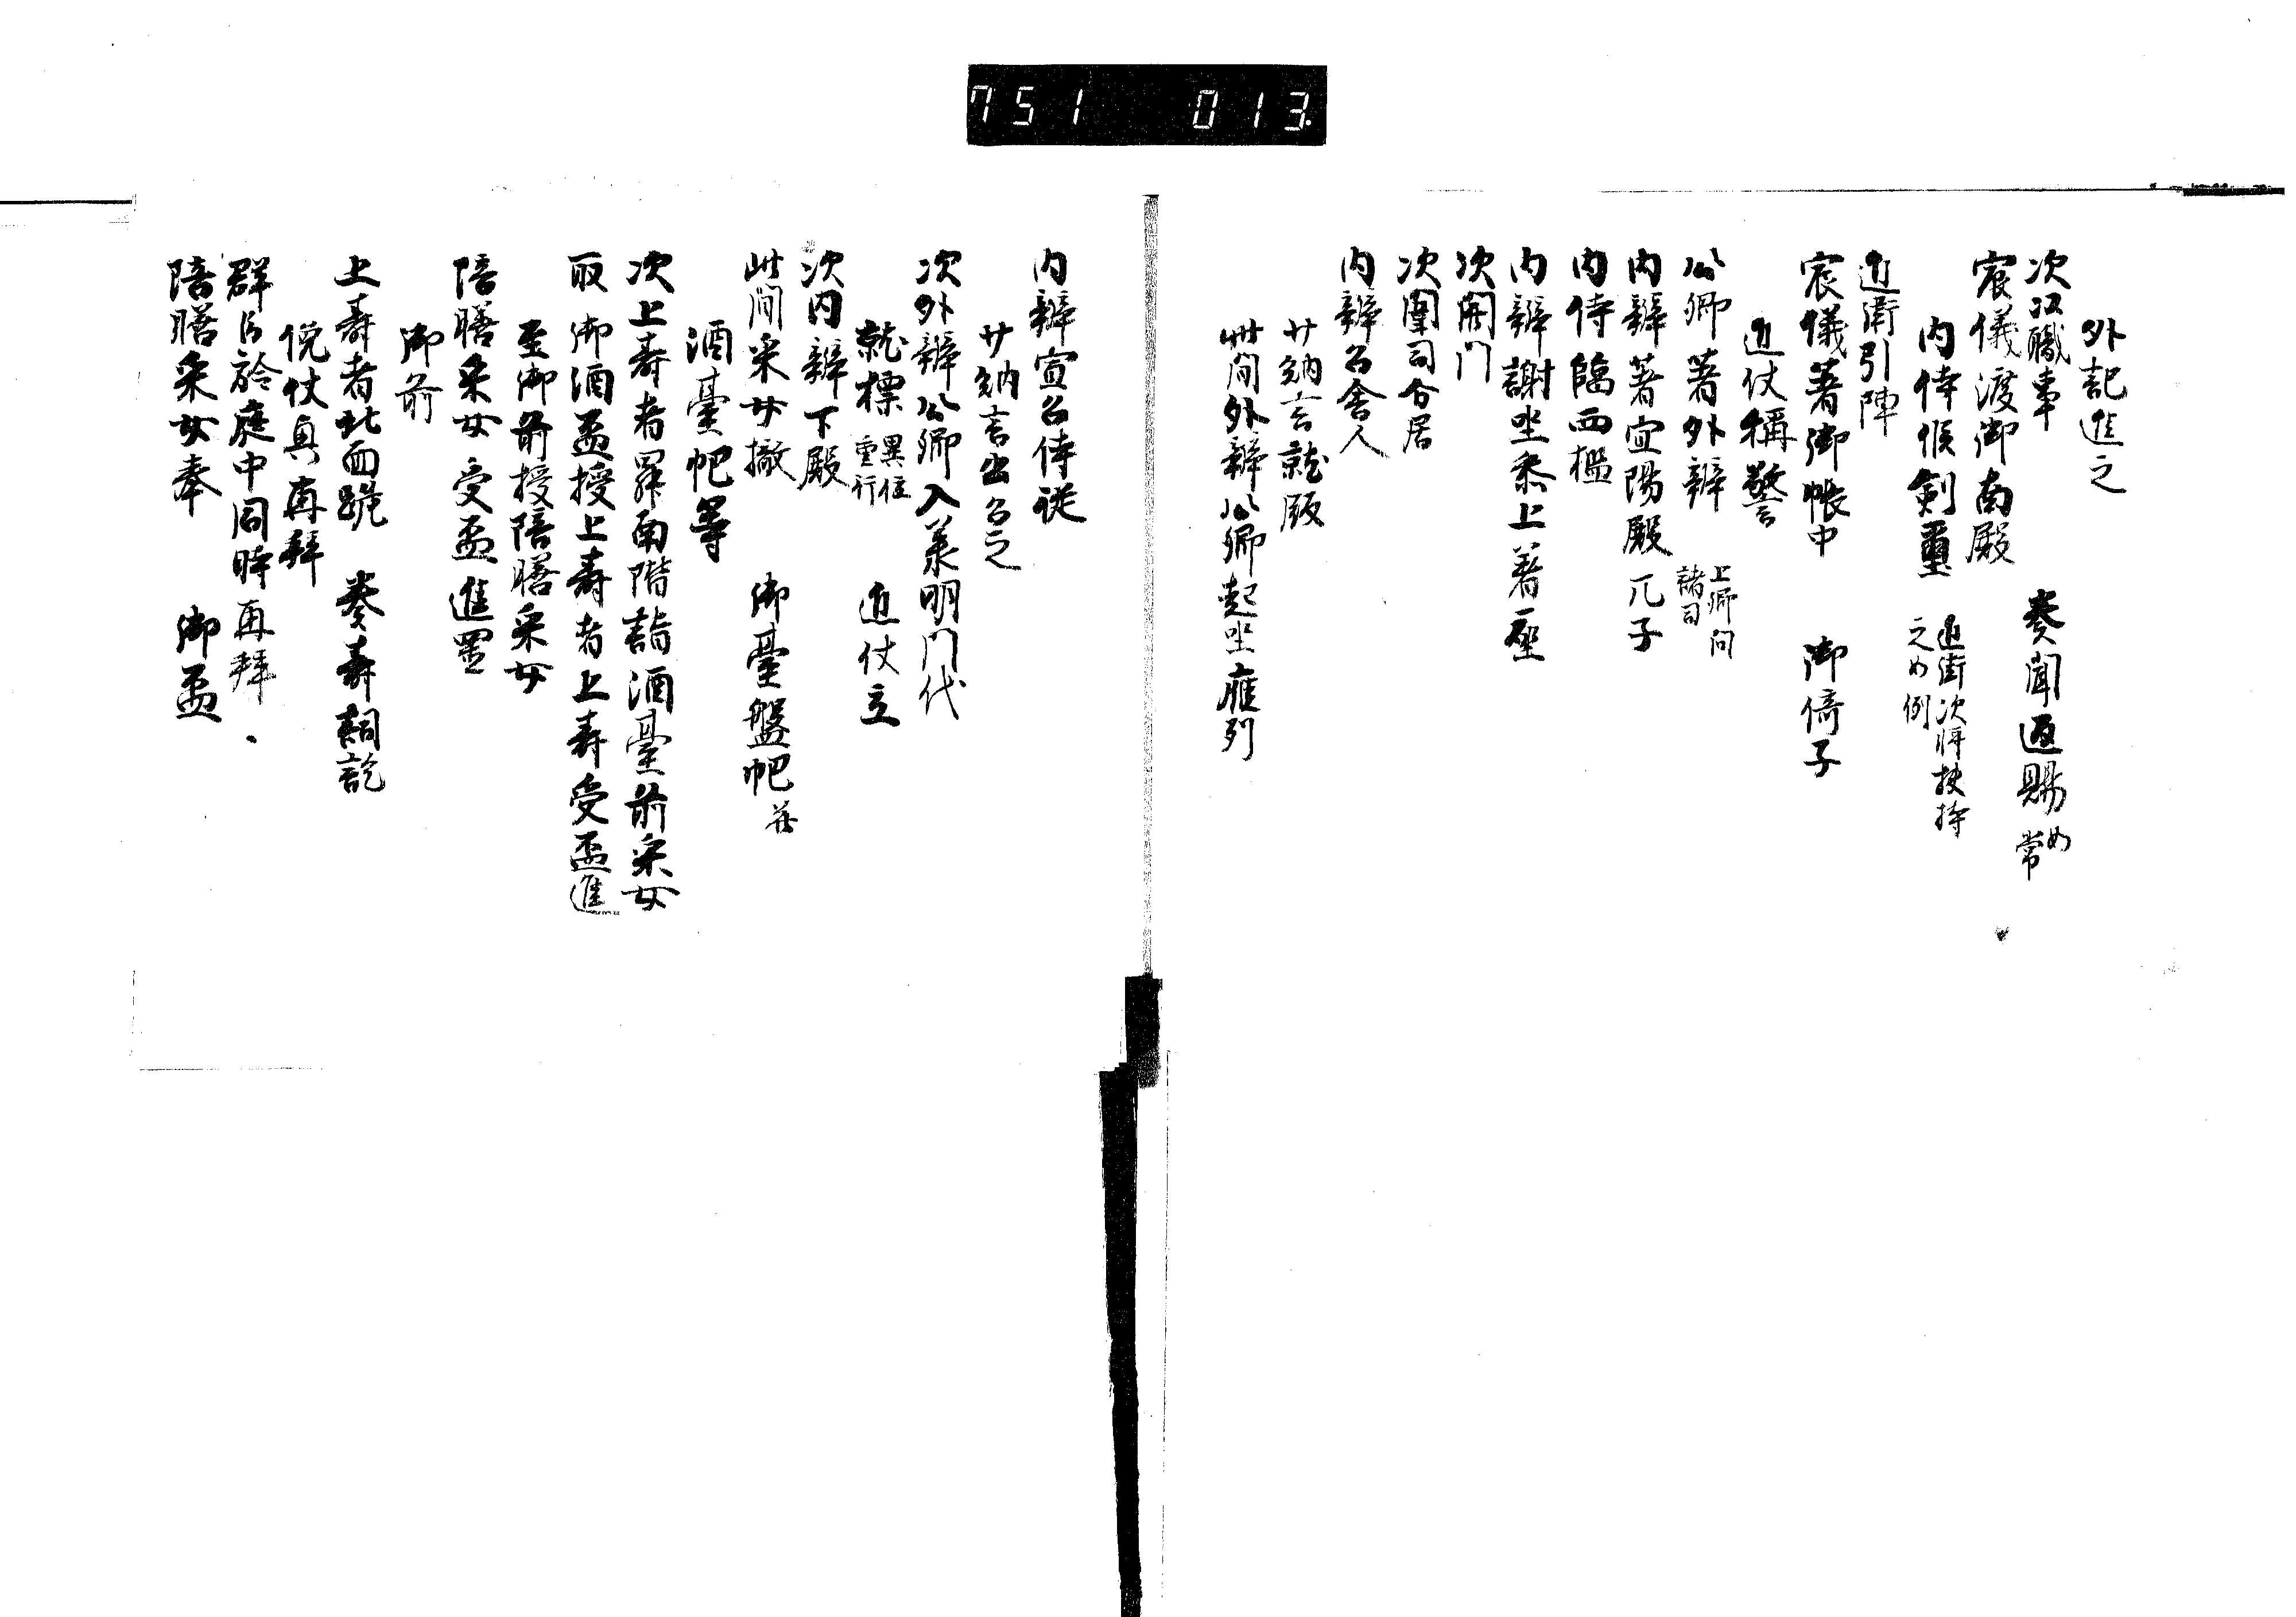 751 013
外記進之
次以職事　奏聞返賜如常
宸儀渡御南殿
内侍候剣璽 近衛次将扶持之如例
近衛引陣
宸儀著御帳中　御倚子
近仗稱警
公卿著外辨 上卿問諸司
内辨著宜陽殿兀子
内侍臨西檻
内辨謝坐参上著座
次開門
次闈司分居
内辨召舎人
少納言就版
此間外辨公卿起坐雁列
内辨宣召侍従
少納言出召之
次外辨公卿入承明門代
就標 異位重行　近仗立
次内辨下殿
此間采女撤　御臺盤帊并
酒臺帊等
次上壽者昇南階詣酒臺前采女
取御酒盃授上壽者上壽受盃進
至御前授陪膳采女
陪膳采女受盃進置
御前
上壽者北面跪　奏壽詞訖
俛伏興再拜
群臣於庭中同時再拜
陪膳采女奉　御盃